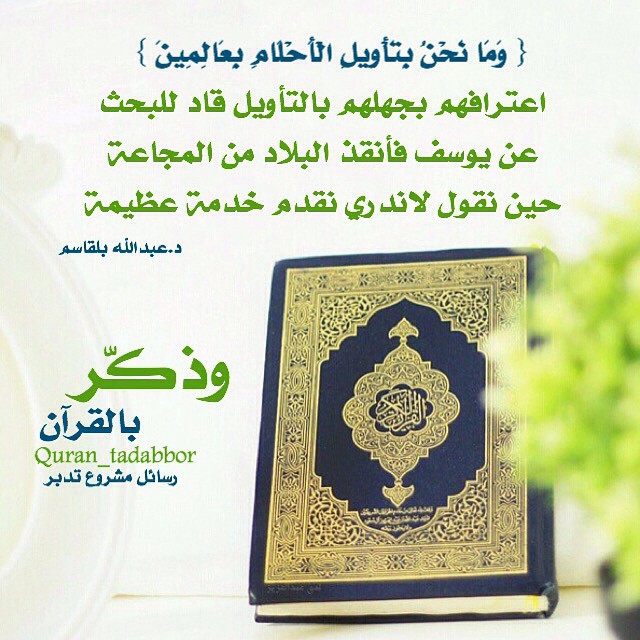 { وَمَا نَحْنُ بِتَأوِيلِ الْأَحْلَامِ بِعَالِمِينَ }
اعترافهم بجهلهم بالتأويل قاد للبحث
عن يوسف فأنقذ البلاد من المجاعة
حين نقول لاندري نقدم خدمة عظيمة
د.عبدالله بلقاسم
وذكّر
بالقرآن
Quran_tadabbor
رسائل مشروع تدبر
القرآن الكريم